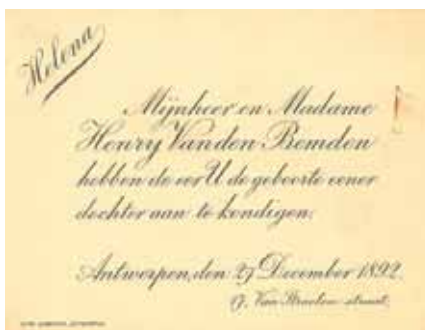 Helena
Mijnheer en Madame
Henry Vanden Bemden
hebben de eer U de geboorte eener
dochter aan te kondigen.
Antwerpen, den 27 December 1892.
17, Van Straelen-straat.